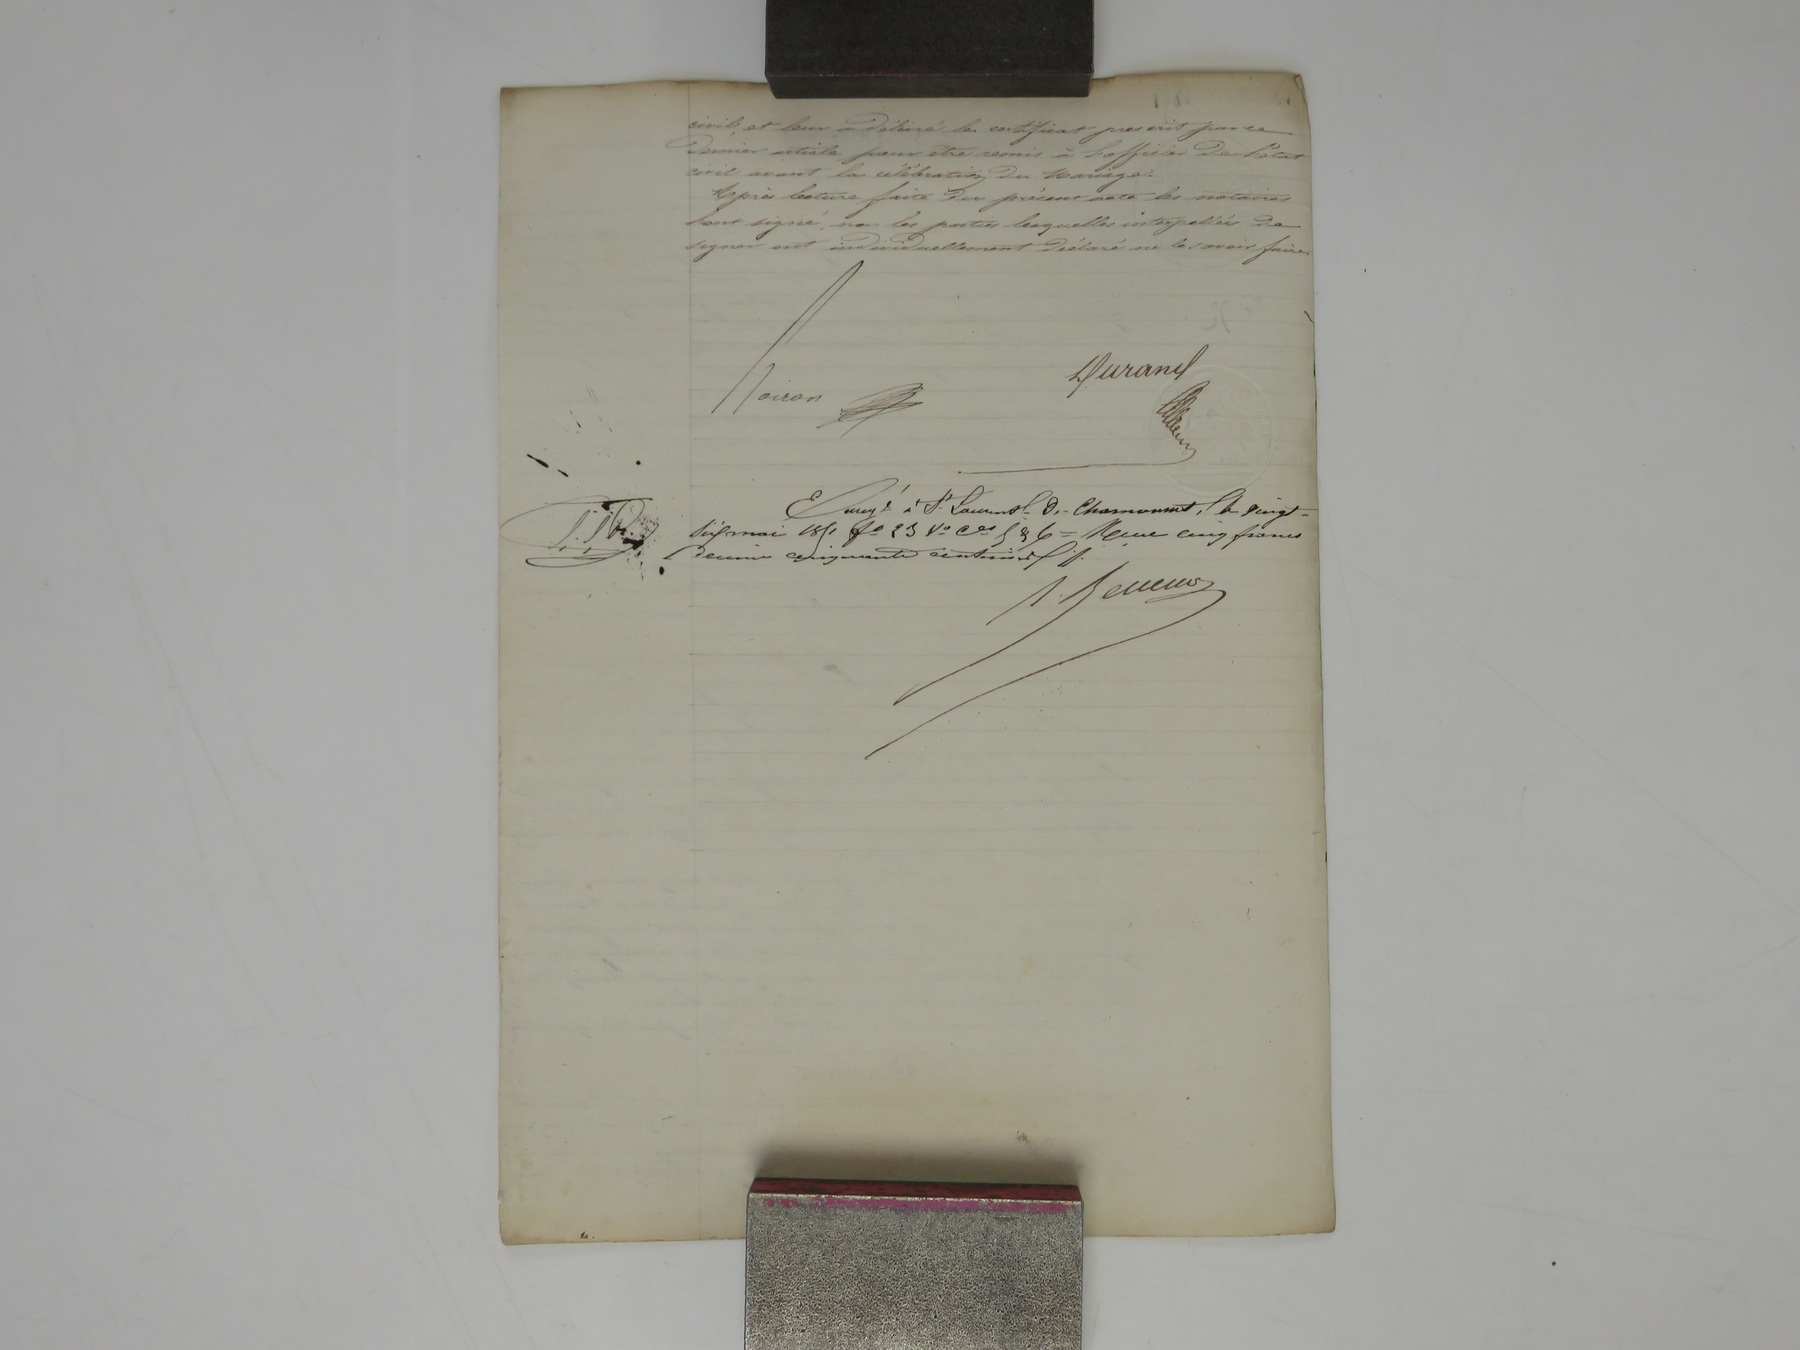 civil, et leur a délivré le certificat prescrit par ce
dernier article pour être remis à l'officier de l'état
civil avant la célébration du mariage.
Après lecture faite du présent acte les notaires
l'ont signé, non les parties lesquelles interpellées de
signer ont individuellement déclaré ne le savoir faire
Noiron
Durand
à St Laurent de Chamousset, le vingt-
mai fo 23 Vo Ces 5 & 6 = Reçu cinq francs
decime cinquante centimes